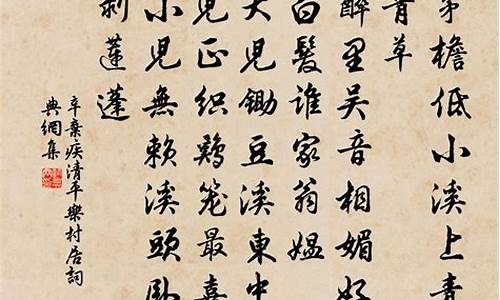 茅檐低小溪上青
青草
醉里吴音相媚好
白髮誰家翁媪
大兒鋤豆溪東中
兒正織鷄笼最喜
小兒無賴溪頭卧
剥蓮蓬
辛棄疾清平樂村居詞
典網集